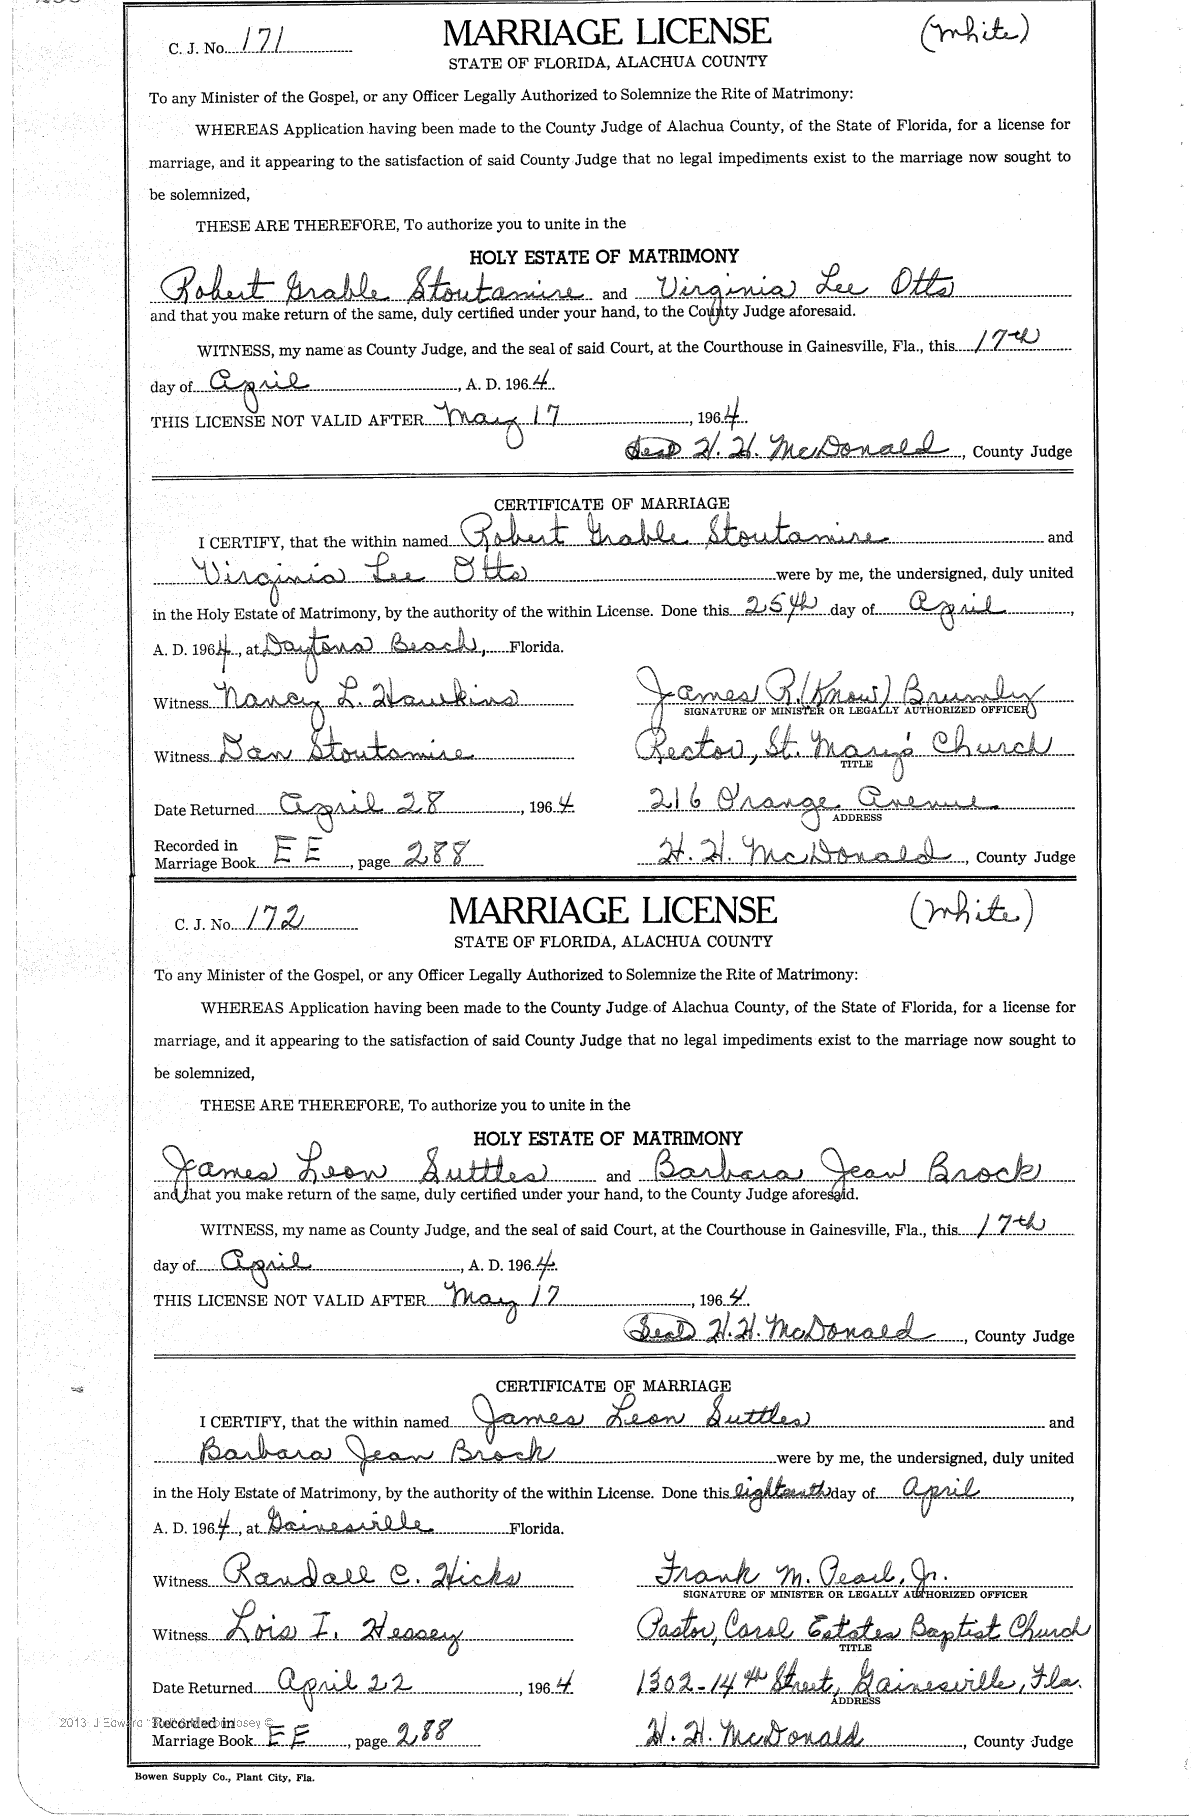 C. J. No. 171 MARRIAGE LICENSE (White)
STATE OF FLORIDA, ALACHUA COUNTY
To any Minister of the Gospel, or any Officer Legally Authorized to Solemnize the Rite of Matrimony:
WHEREAS Application having been made to the County Judge of Alachua County, of the State of Florida, for a license for
marriage, and it appearing to the satisfaction of said County Judge that no legal impediments exist to the marriage now sought to
be solemnized,
THESE ARE THEREFORE, To authorize you to unite in the
HOLY ESTATE OF MATRIMONY
Robert Grable Stoutamire and Virginia Lee Otts
and that you make return of the same, duly certified under your hand, to the County Judge aforesaid.
WITNESS, my name as County Judge, and the seal of said Court, at the Courthouse in Gainesville, Fla., this 17th
day of April, A. D. 1964
THIS LICENSE NOT VALID AFTER May 17, 1964
Seal H. H. McDonald, County Judge
CERTIFICATE OF MARRIAGE
I CERTIFY, that the within named Robert Grable Stoutamire and
Virginia Lee Otts were by me, the undersigned, duly united
in the Holy Estate of Matrimony, by the authority of the within License. Done this 25th day of April,
A. D. 1964, at Daytona Beach, Florida.
Witness Nancy L. Hawkins James R. (Know) Brumby
SIGNATURE OF MINISTER OR LEGALLY AUTHORIZED OFFICER
Witness Dan Stoutamire Rector, St. Mary's Church
TITLE
Date Returned April 28, 1964 216 Orange Avenue
ADDRESS
Recorded in
Marriage Book EE, page 288 H. H. McDonald, County Judge
C. J. No. 172 MARRIAGE LICENSE (White)
STATE OF FLORIDA, ALACHUA COUNTY
To any Minister of the Gospel, or any Officer Legally Authorized to Solemnize the Rite of Matrimony:
WHEREAS Application having been made to the County Judge of Alachua County, of the State of Florida, for a license for
marriage, and it appearing to the satisfaction of said County Judge that no legal impediments exist to the marriage now sought to
be solemnized,
THESE ARE THEREFORE, To authorize you to unite in the
HOLY ESTATE OF MATRIMONY
James Leon Suttles and Barbara Jean Brock
and that you make return of the same, duly certified under your hand, to the County Judge aforesaid.
WITNESS, my name as County Judge, and the seal of said Court, at the Courthouse in Gainesville, Fla., this 17th
day of April, A. D. 1964.
THIS LICENSE NOT VALID AFTER May 17, 1964.
Seal H. H. McDonald, County Judge
CERTIFICATE OF MARRIAGE
I CERTIFY, that the within named James Leon Suttles and
Barbara Jean Brock were by me, the undersigned, duly united
in the Holy Estate of Matrimony, by the authority of the within License. Done this eighteenth day of April,
A. D. 1964, at Gainesville Florida.
Witness Randall C. Hicks Frank M. Pearl, Jr.
SIGNATURE OF MINISTER OR LEGALLY AUTHORIZED OFFICER
Witness Lois I. Hessey Pastor, Carol Estates Baptist Church
TITLE
Date Returned April 22, 1964 1302-14th Street, Gainesville, Fla.
ADDRESS
2013 J Edward
Recorded in
Marriage Book EE, page 288 H. H. McDonald, County Judge
Bowen Supply Co., Plant City, Fla.